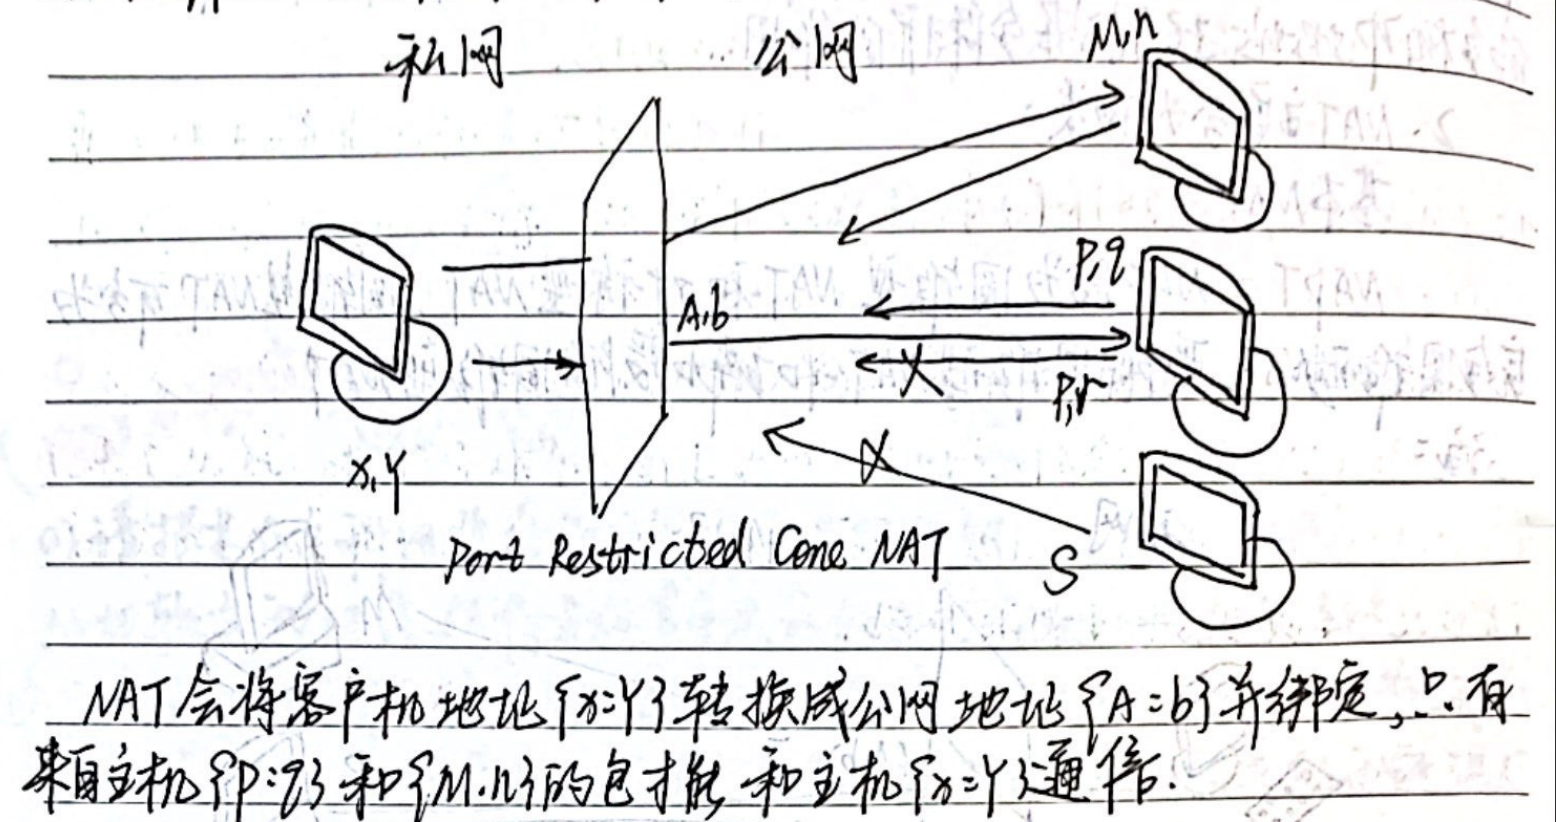 私网 公网 M,n
P,q
A,b
P,r
X,Y
Port Restricted Cone NAT S
NAT会将客户机地址{X:Y}转换成公网地址{A:b}并绑定,只有
来自主机{P:q}和{M,n}的包才能和主机{X:Y}通信.